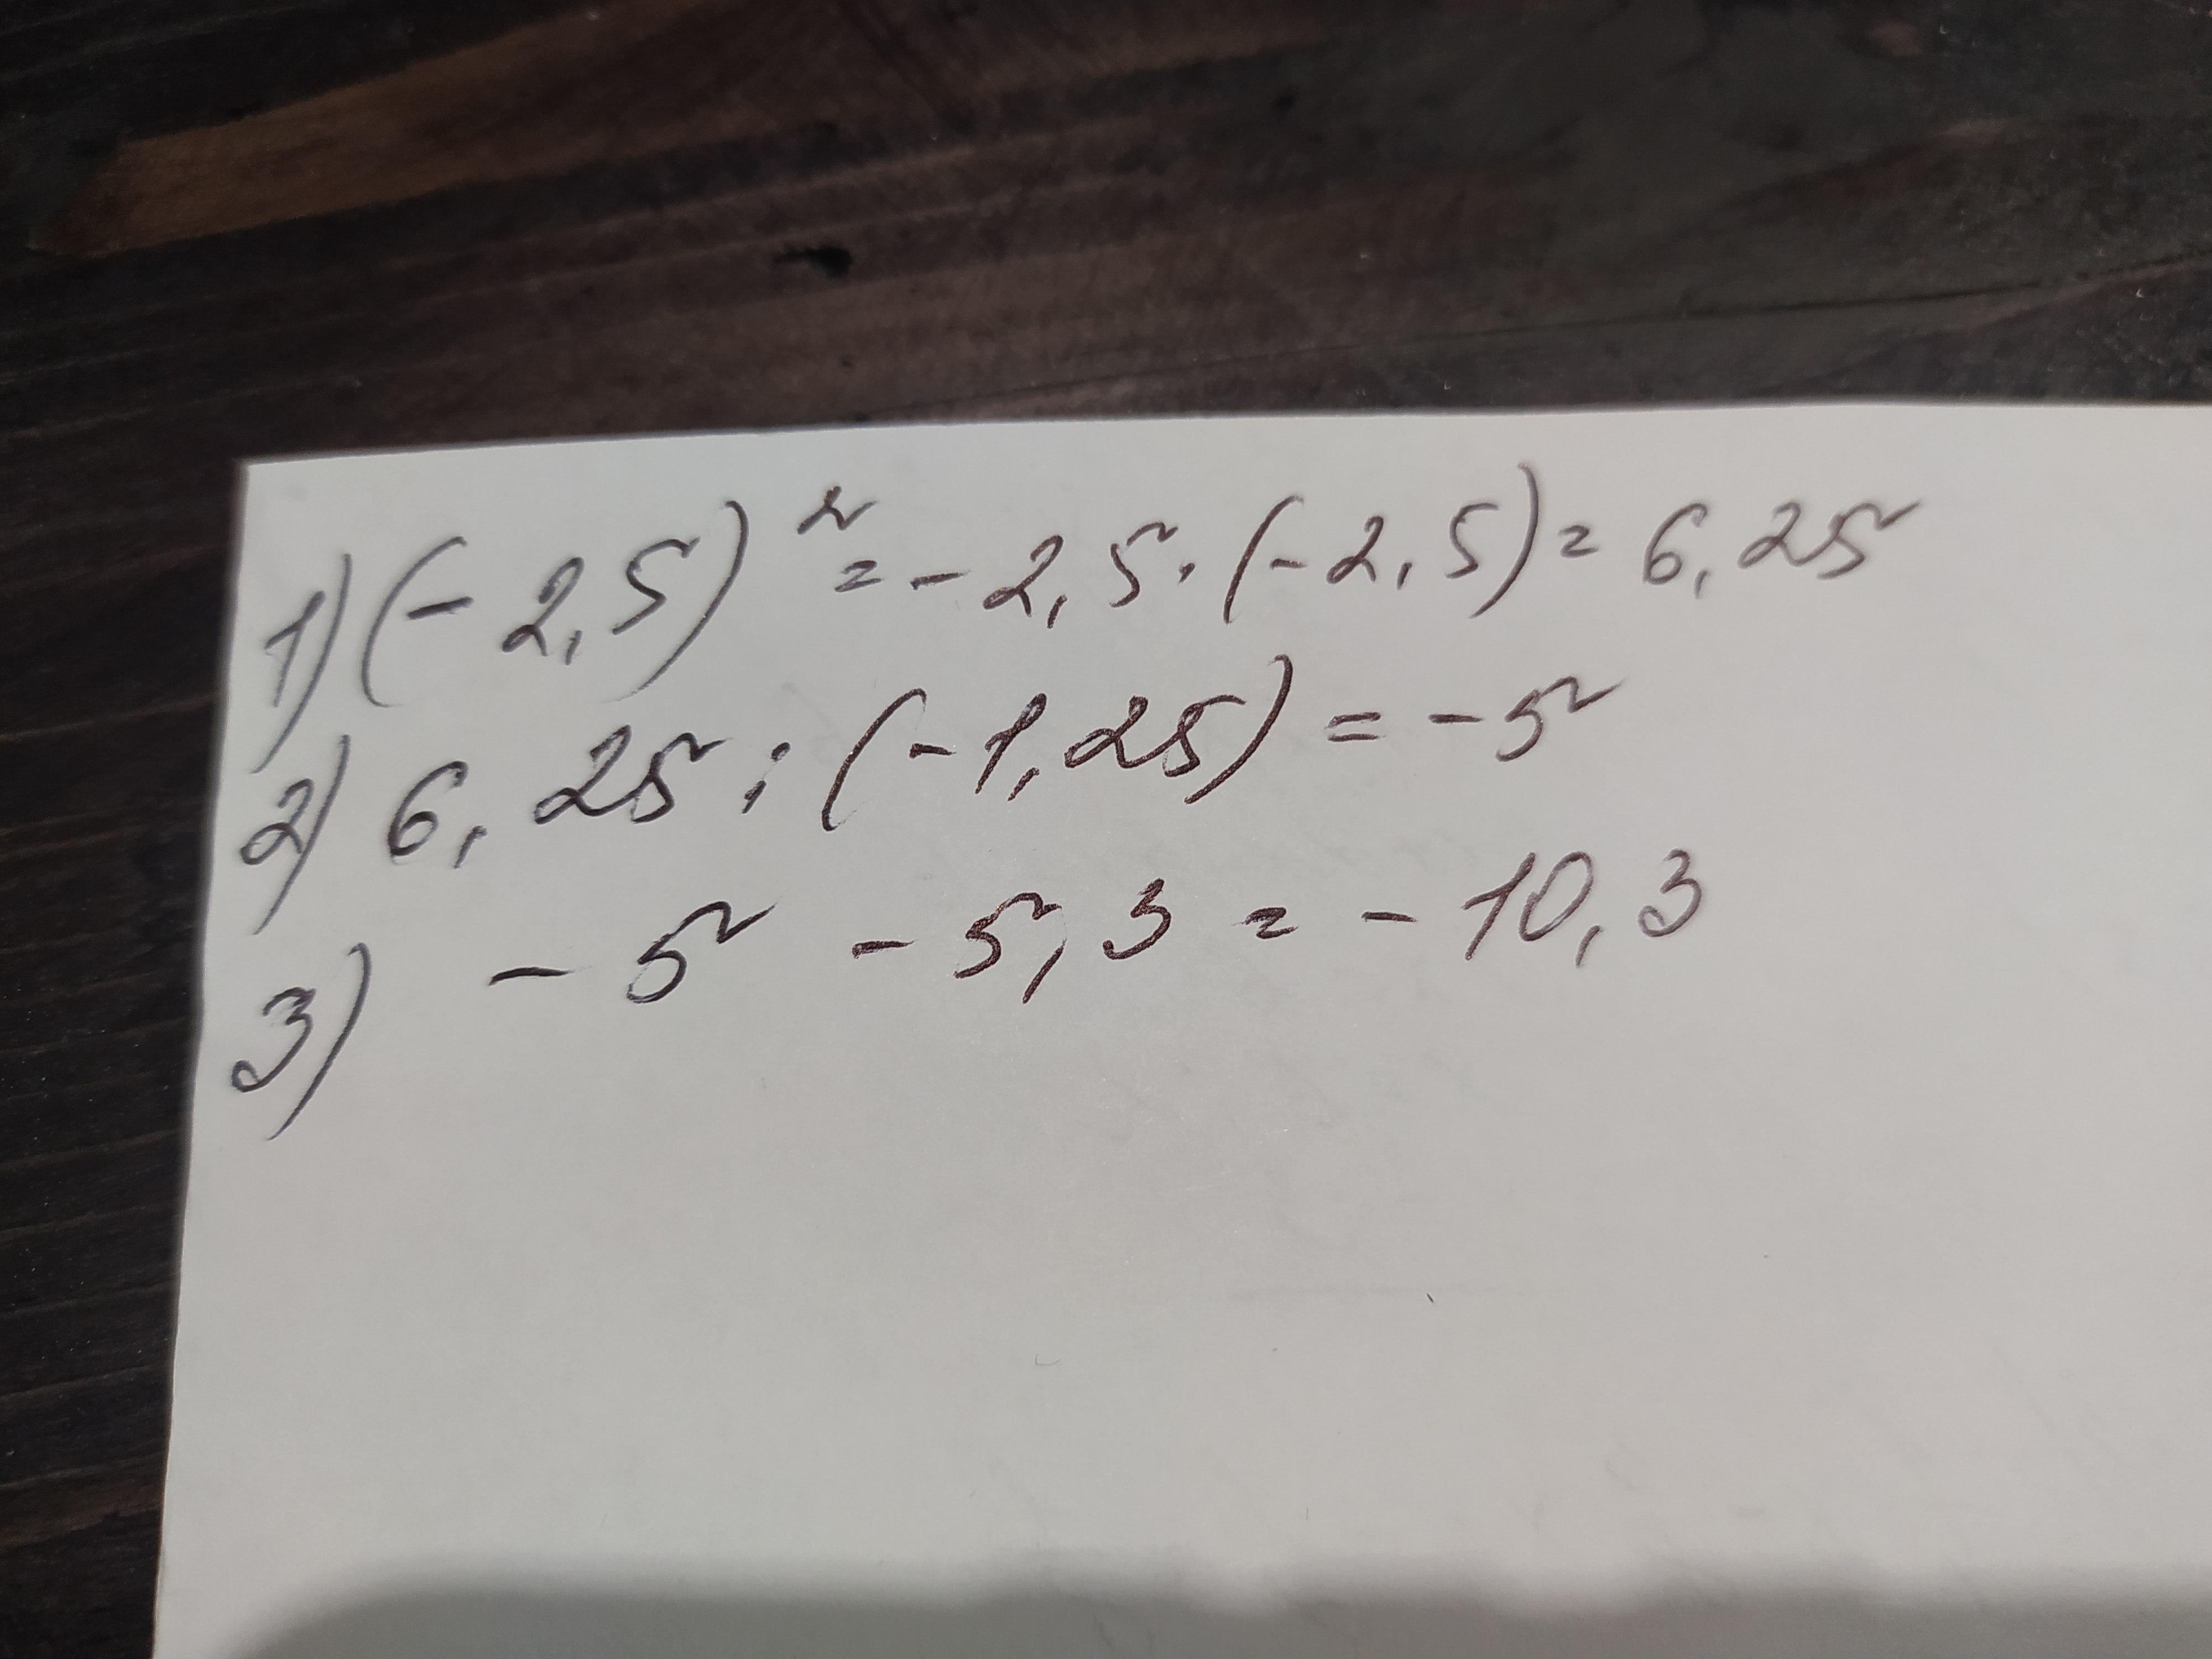 1) (-2,5)² = -2,5 · (-2,5) = 6,25
2) 6,25 : (-1,25) = -5
3) -5 - 5,3 = -10,3